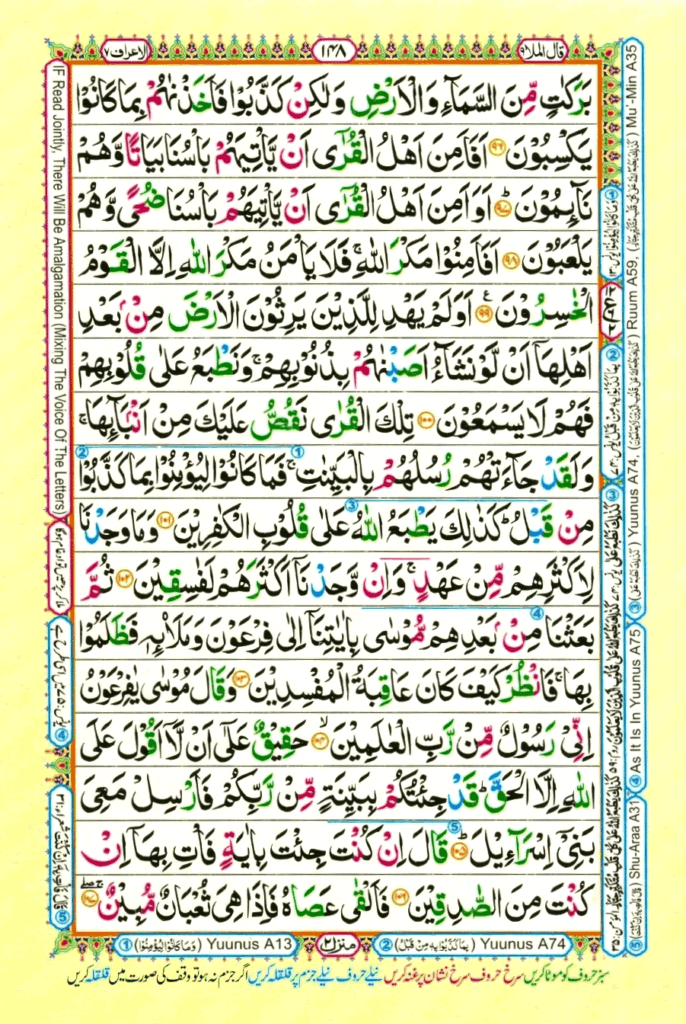 قال الملا ۹
۱۴۸
الاعراف ۷
بَرَكٰتٍ مِّنَ السَّمَآءِ وَالْاَرْضِ وَلٰكِنْ كَذَّبُوْا فَاَخَذْنٰهُمْ بِمَا كَانُوْا
يَكْسِبُوْنَ ۹۶ اَفَاَمِنَ اَهْلُ الْقُرٰٓى اَنْ يَّاْتِيَهُمْ بَاْسُنَا بَيَاتًا وَّهُمْ
نَآئِمُوْنَ ؕ ۹۷ اَوَاَمِنَ اَهْلُ الْقُرٰٓى اَنْ يَّاْتِيَهُمْ بَاْسُنَا ضُحًى وَّهُمْ
يَلْعَبُوْنَ ۹۸ اَفَاَمِنُوْا مَكْرَ اللّٰهِ ۚ فَلَا يَاْمَنُ مَكْرَ اللّٰهِ اِلَّا الْقَوْمُ
الْخٰسِرُوْنَ ۹۹ ع اَوَلَمْ يَهْدِ لِلَّذِيْنَ يَرِثُوْنَ الْاَرْضَ مِنْۢ بَعْدِ
اَهْلِهَاۤ اَنْ لَّوْ نَشَآءُ اَصَبْنٰهُمْ بِذُنُوْبِهِمْ ۚ وَنَطْبَعُ عَلٰى قُلُوْبِهِمْ
فَهُمْ لَا يَسْمَعُوْنَ ۱۰۰ تِلْكَ الْقُرٰى نَقُصُّ عَلَيْكَ مِنْ اَنْۢبَآئِهَا ۚ
وَلَقَدْ جَآءَتْهُمْ رُسُلُهُمْ بِالْبَيِّنٰتِ ۚ فَمَا كَانُوْا لِيُؤْمِنُوْا بِمَا كَذَّبُوْا
مِنْ قَبْلُ ؕ كَذٰلِكَ يَطْبَعُ اللّٰهُ عَلٰى قُلُوْبِ الْكٰفِرِيْنَ ۱۰۱ وَمَا وَجَدْنَا
لِاَكْثَرِهِمْ مِّنْ عَهْدٍ ۚ وَاِنْ وَّجَدْنَاۤ اَكْثَرَهُمْ لَفٰسِقِيْنَ ۱۰۲ ثُمَّ
بَعَثْنَا مِنْۢ بَعْدِهِمْ مُّوْسٰى بِاٰيٰتِنَاۤ اِلٰى فِرْعَوْنَ وَمَلَا۟ئِهٖ فَظَلَمُوْا
بِهَا ۚ فَانْظُرْ كَيْفَ كَانَ عَاقِبَةُ الْمُفْسِدِيْنَ ۱۰۳ وَقَالَ مُوْسٰى يٰفِرْعَوْنُ
اِنِّيْ رَسُوْلٌ مِّنْ رَّبِّ الْعٰلَمِيْنَ ۙ ۱۰۴ حَقِيْقٌ عَلٰٓى اَنْ لَّاۤ اَقُوْلَ عَلَى
اللّٰهِ اِلَّا الْحَقَّ ؕ قَدْ جِئْتُكُمْ بِبَيِّنَةٍ مِّنْ رَّبِّكُمْ فَاَرْسِلْ مَعِيَ
بَنِيْٓ اِسْرَآءِيْلَ ؕ ۱۰۵ قَالَ اِنْ كُنْتَ جِئْتَ بِاٰيَةٍ فَاْتِ بِهَاۤ اِنْ
كُنْتَ مِنَ الصّٰدِقِيْنَ ۱۰۶ فَاَلْقٰى عَصَاهُ فَاِذَا هِيَ ثُعْبَانٌ مُّبِيْنٌ ۱۰۷
① (وَمَا كَانُوْا لِيُؤْمِنُوْا) Yuunus A13
منزل ۲
② (بِمَا كَذَّبُوْا بِهٖ مِنْ قَبْلُ) Yuunus A74
سبز حروف کو موٹا کریں سرخ حروف سرخ نشان پر غنہ کریں نیلے حروف نیلے جزم پر قلقلہ کریں اگر جزم نہ ہو تو وقف کی صورت میں قلقلہ کریں
IF Read Jointly, There Will Be Amalgamation (Mixing The Voice Of The Letters)
Mu'-Min A35
Ruum A59,
③ Yuunus A74,
④ As It Is In Yuunus A75
⑤ Shu-Araa A31